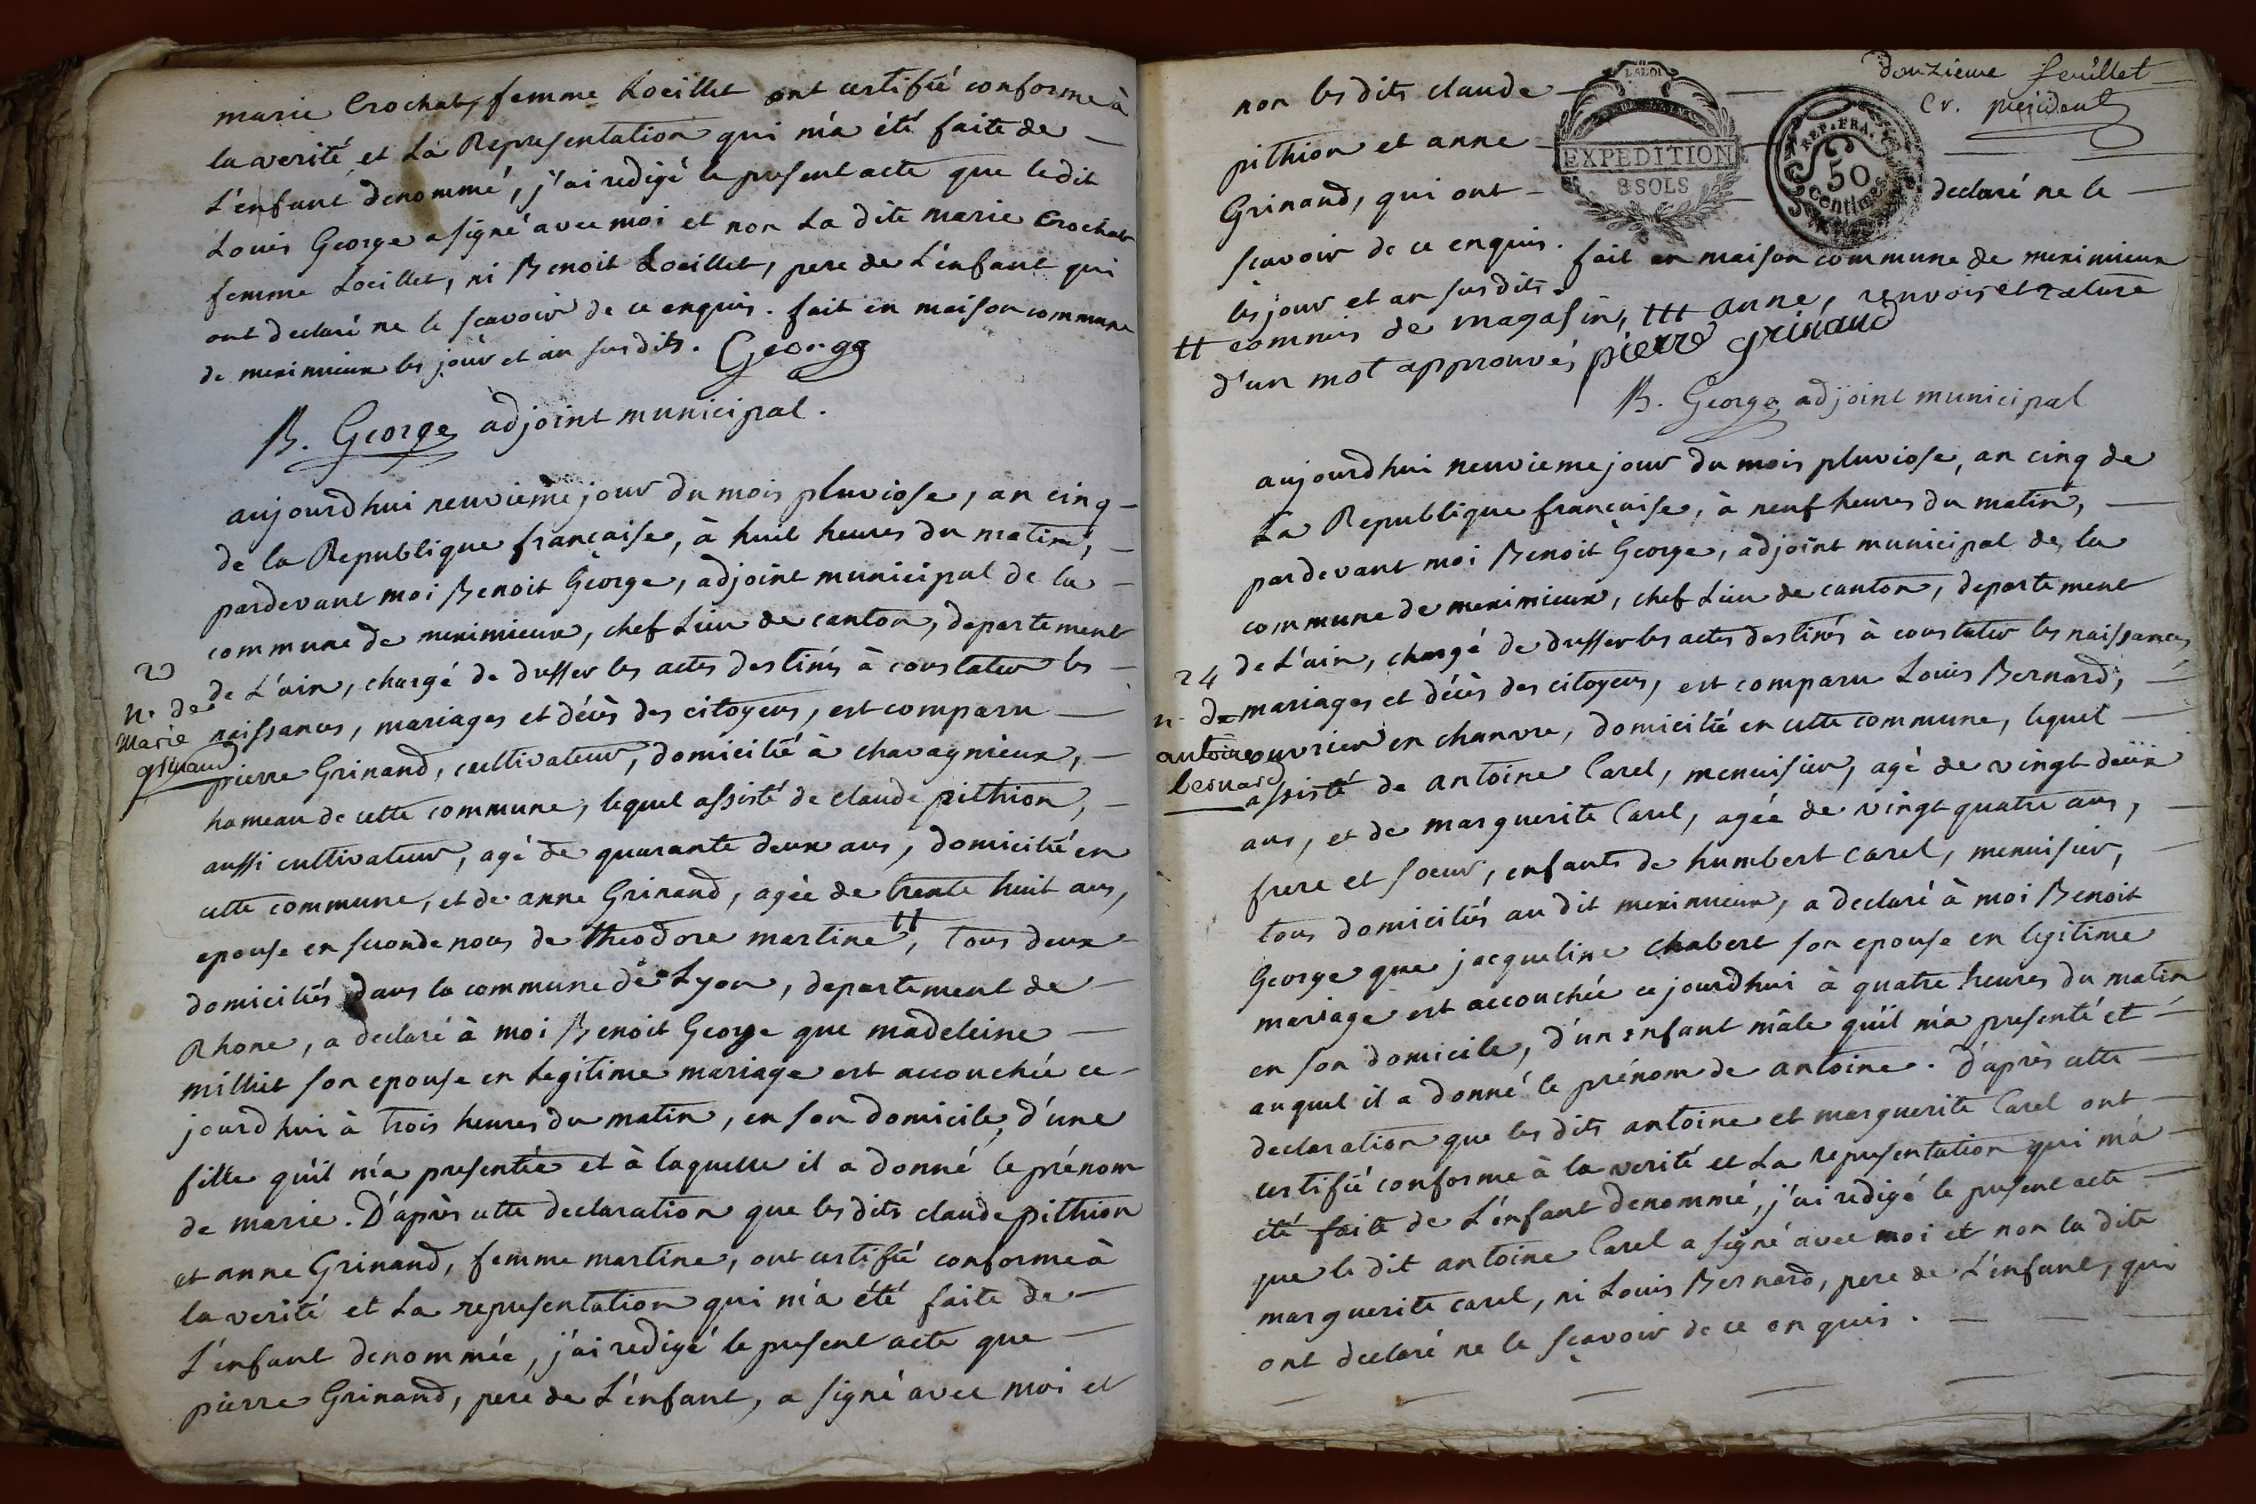 marie Crochat, femme Loeillet ont certifié conforme à
la verité et La Representation qui m'a été faite de
L'enfant denommé, j'ai redigé le present acte que le dit
Louis George a signé avec moi et non La dite marie Crochat
femme Loeillet, ni Benoit Loeillet, pere de L'enfant qui
ont declaré ne le scavoir de ce enquis. fait en maison commune
de meximieux les jour et an susdits. George
B. George adjoint municipal.
aujourdhui neuvieme jour du mois pluviose, an cinq
de la Republique française, à huit heures du matin,
pardevant moi Benoit George, adjoint municipal de la
commune de meximieux, chef Lieu de canton, departement
de L'ain, chargé de dresser les actes destinés à constater les
naissances, mariages et décès des citoyens, est comparu
N. de
Marie
grinand
pierre Grinand, cultivateur, domicilié à chavagnieux,
hameau de cette commune, lequel assisté de claude pithion,
aussi cultivateur, agé de quarante deux ans, domicilié en
cette commune, et de anne Grinand, agée de trente huit ans,
epouse en seconde noces de theodore martine tt, tous deux
domiciliés dans la commune de Lyon, departement de
Rhone, a declaré à moi Benoit George que madeleine
milliet son epouse en Legitime mariage est accouchée ce
jourdhui à trois heures du matin, en son domicile, d'une
fille qu'il m'a presentée et à laquelle il a donné le prénom
de marie. D'après cette declaration que les dits claude pithion
et anne Grinand, femme martine, ont certifié conforme à
la verité et La representation qui m'a été faite de
L'enfant denommée, j'ai redigé le present acte que
pierre Grinand, pere de L'enfant, a signé avec moi et
douzieme feuillet
Cr. president
non les dits claude
pithion et anne
Grinand, qui ont declaré ne le
LA LOI
EXPEDITION
8 SOLS
REP. FRA.
50
Centimes
scavoir de ce enquis. fait en maison commune de meximieux
les jour et an susdits.
tt commis de magasin, ttt anne, renvois et rature
d'un mot approuvés pierre grinand
B. George adjoint municipal
aujourdhui neuvieme jour du mois pluviose, an cinq de
La Republique française, à neuf heures du matin,
pardevant moi Benoit George, adjoint municipal de la
commune de meximieux, chef Lieu de canton, departement
de L'ain, chargé de dresser les actes destinés à constater les naissances
24
n. de
antoine
bernard
mariages et décès des citoyens, est comparu Louis Bernard,
ouvrier en chanvre, domicilié en cette commune, lequel
assisté de antoine Carel, menuisier, agé de vingt deux
ans, et de marguerite Carel, agée de vingt quatre ans,
frere et soeur, enfants de humbert carel, menuisier,
tous domiciliés au dit meximieux, a declaré à moi Benoit
George que jacqueline chabert son epouse en legitime
mariage est accouchée ce jourdhui à quatre heures du matin
en son domicile, d'un enfant mâle qu'il m'a presenté et
auquel il a donné le prénom de antoine. D'après cette
declaration que les dits antoine et marguerite Carel ont
certifié conforme à la verité et La representation qui m'a
été faite de L'enfant denommé, j'ai redigé le present acte
que le dit antoine Carel a signé avec moi et non la dite
marguerite carel, ni Louis Bernard, pere de L'enfant, qui
ont declaré ne le scavoir de ce enquis.